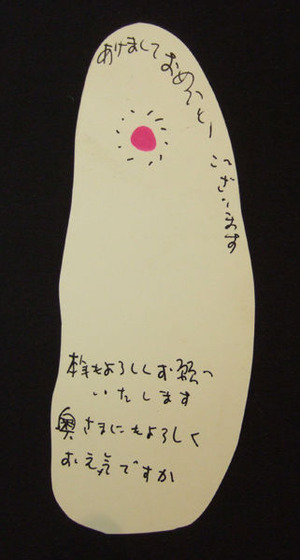 あけましておめでとう
ございます
本年もよろしくお願い
いたします
奥さまにもよろしく
お元気ですか